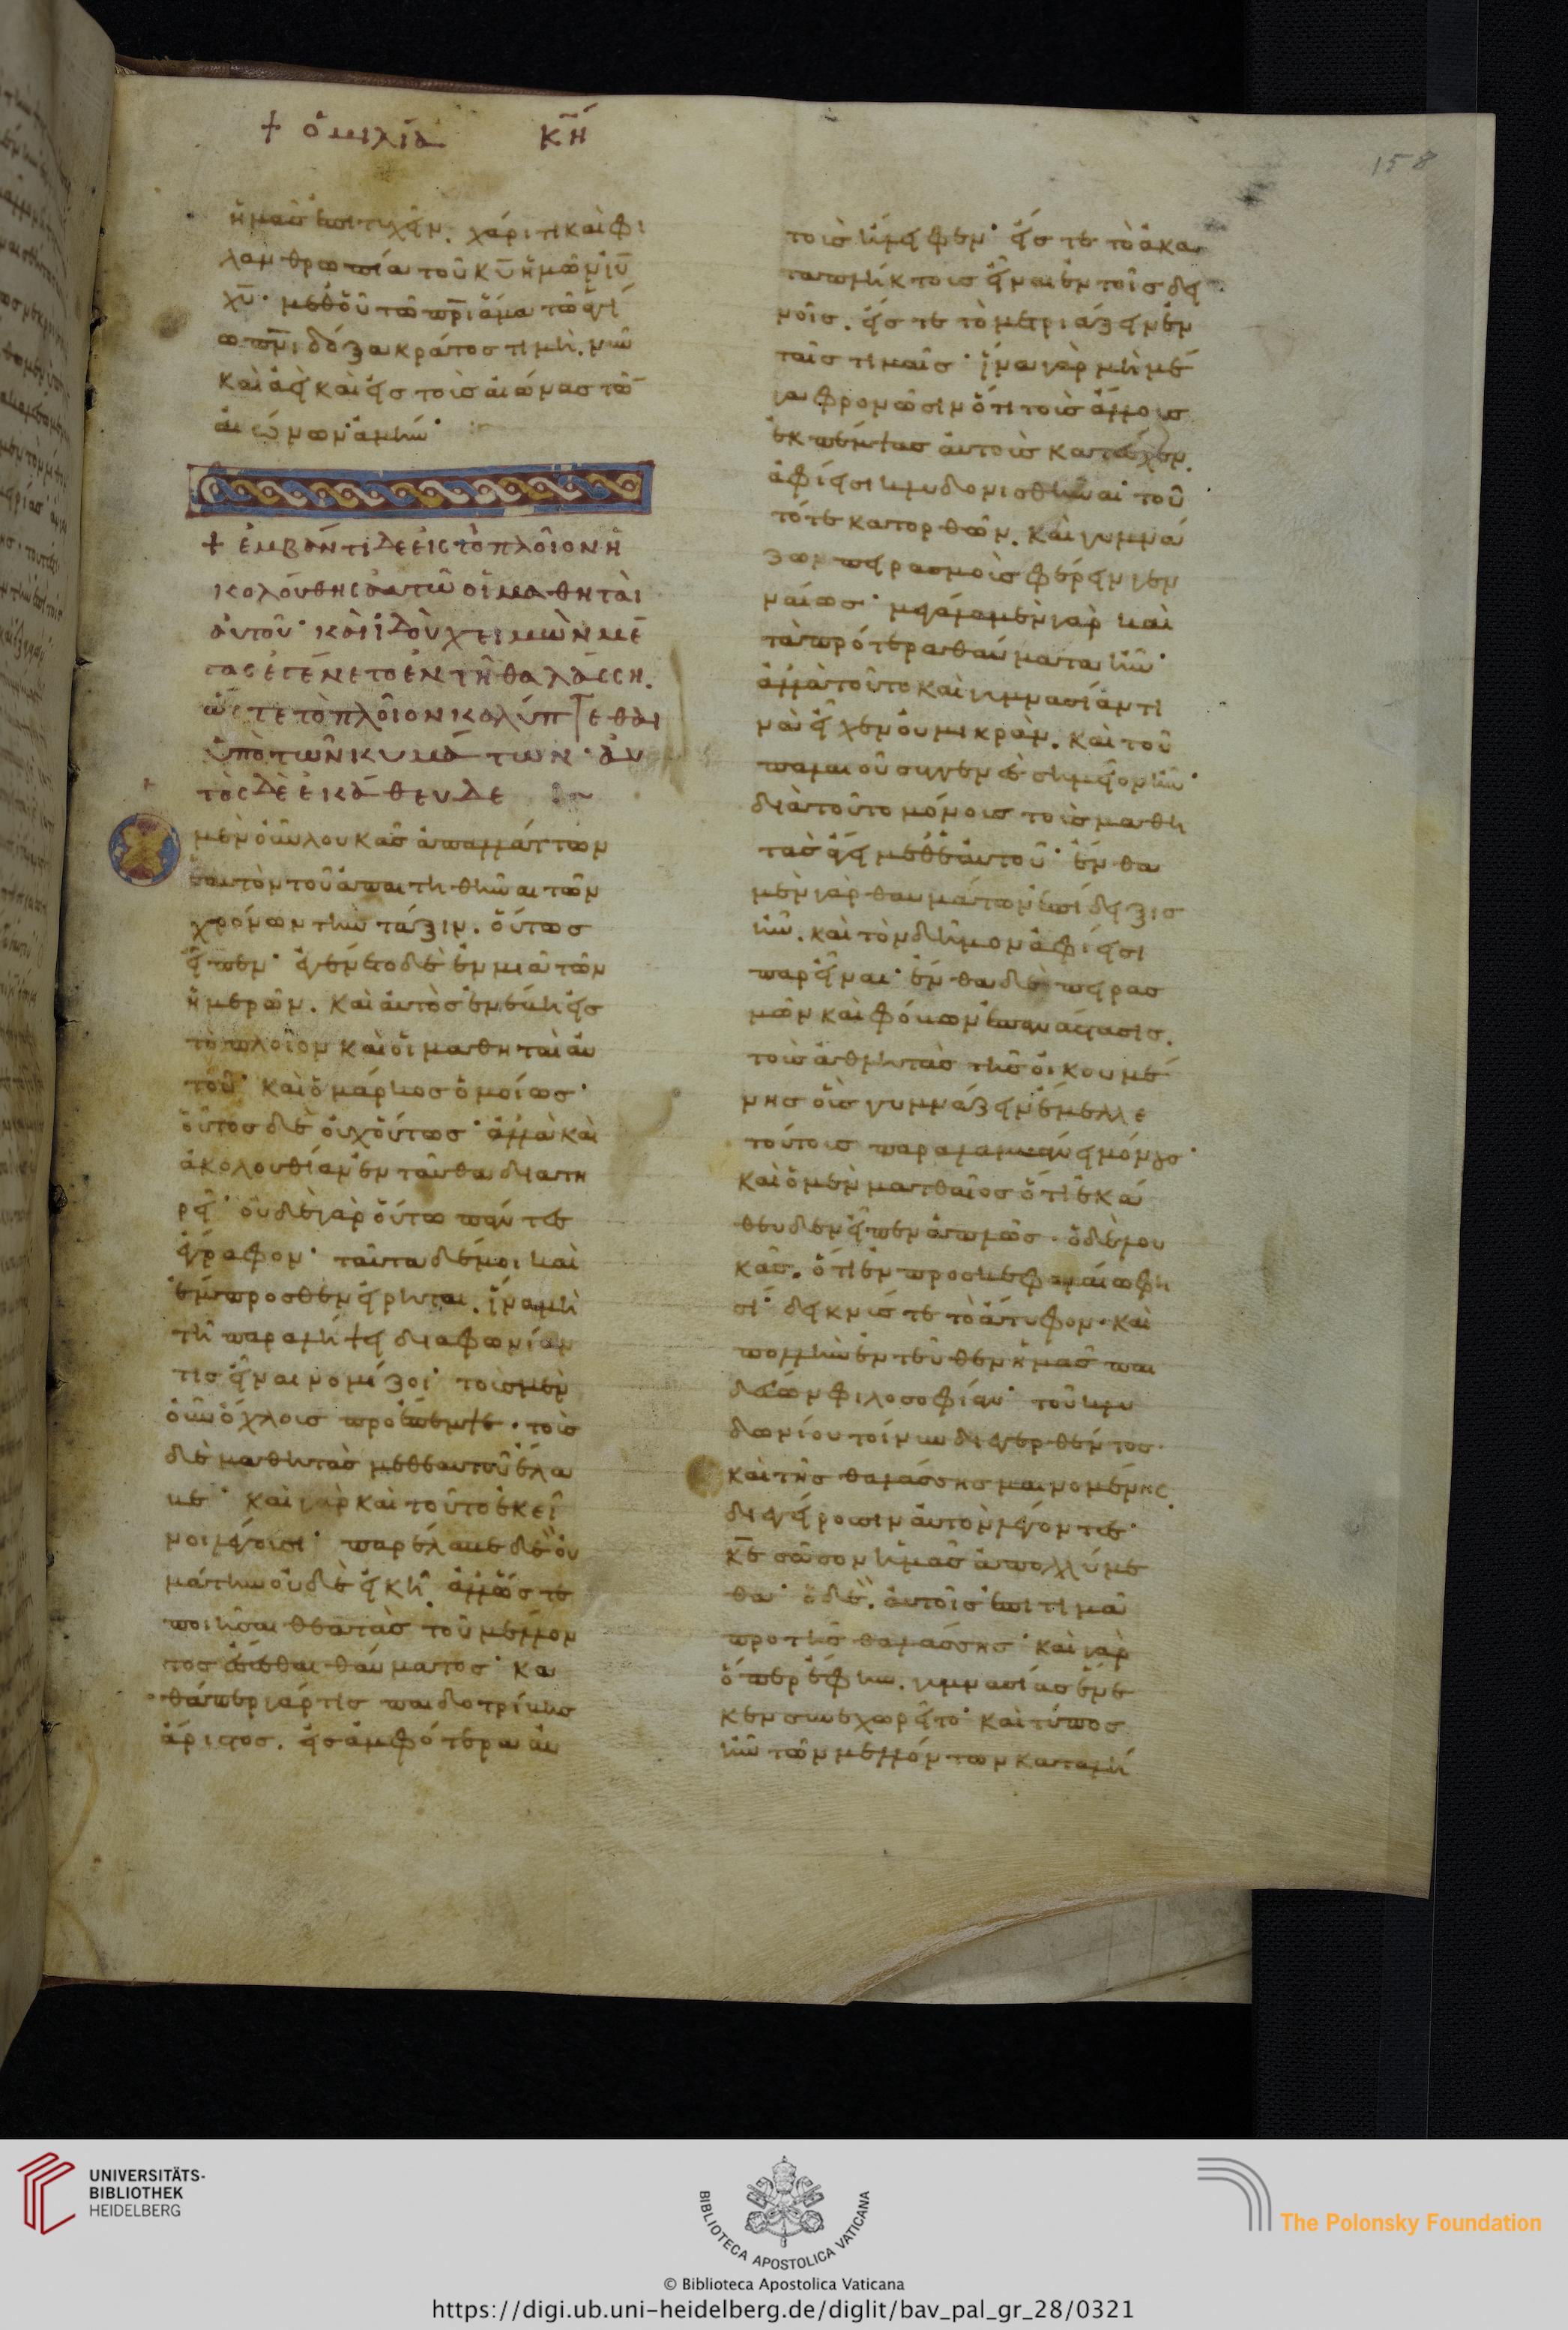 + ὁμιλία κη
158
ἡμᾶς ἐπιτυχεῖν. χάριτι καὶ φι
λανθρωπία τοῦ κ̅υ̅ ἡμῶν ι̅υ̅
χ̅υ̅· μεθ οὗ τῶ π̅ρ̅ι̅ ἅμα τῶ ἁγί
ω π̅ν̅ι̅ δόξα κράτος τιμή. νῦν
καὶ ἀεὶ καὶ εἰς τοὺς αἰῶνας τῶ̅
αἰώνων ἀμήν·
+ ἐμβάντι δὲ εἰς τὸ πλοῖον ἠ
κολούθησαν αὐτῶ οἱ μαθηταὶ
αὐτοῦ· καὶ ἰδοὺ χειμὼν μέ
γας ἐγένετο ἐν τῆ θαλάσση.
ὥστε τὸ πλοῖον καλύπτεσθαι
ὑπὸ τῶν κυμάτων· αὐ
τὸς δὲ ἐκάθευδε :~
Ὁ μὲν οὖν λουκᾶς ἀπαλλάττων
ἑαυτὸν τοῦ ἀπαιτηθῆναι τῶν
χρόνων τὴν τάξιν. οὕτως
εἶπεν· ἐγένετο δὲ ἐν μιᾶ τῶν
ἡμερῶν. καὶ αὐτὸς ἐνέβη εἰς
τὸ πλοῖον καὶ οἱ μαθηταὶ αὐ
τοῦ· καὶ ὁ μάρκος ὁμοίως·
οὗτος δὲ οὐχ οὕτως· ἀλλὰ καὶ
ἀκολουθίαν ἐνταῦθα διατη
ρεῖ· οὐδὲ γὰρ οὕτω πάντες
ἔγραφον· ταῦτα δέ μοι καὶ
ἔμπροσθεν εἴρηται. ἵνα μὴ
τῆ παραλήψει διαφωνίαν
τις εἶναι νομίζοι· τοὺς μὲν
οὖν ὄχλους προέπεμψε. τοὺς
δὲ μαθητὰς μεθ εαυτοῦ ἔλα
βε· καὶ γὰρ καὶ τοῦτο ἐκεῖ
νοι λέγουσι· παρέλαβε δὲ οὐ
μάτην οὐδὲ εἰκῆ. ἀλλ ὥστε
ποιῆσαι θεατὰς τοῦ μέλλον
τος ἔσεσθαι θαύματος· κα
θάπερ γάρ τις παιδοτρίβης
ἄριστος. εἰς ἀμφότερα αὐ
τοὺς ἤλειφεν· εἴς τε τὸ ἀκα
ταπλήκτους εἶναι ἐν τοῖς δει
νοῖς. εἴς τε τὸ μετριάζειν ἐν
ταῖς τιμαῖς· ἵνα γὰρ μὴ μέ
γα φρονῶσιν ὅτι τοὺς ἄλλους
ἐκπέμψας αὐτοὺς κατέσχεν.
ἀφίησι κλυδωνισθῆναι τοῦ
τό τε κατορθῶν. καὶ γυμνά
ζων πειρασμοὺς φέρειν γεν
ναίως· μεγάλα μὲν γὰρ καὶ
τὰ πρότερα θαύματα ἦν·
ἀλλὰ τοῦτο καὶ γυμνασίαν τι
νὰ εἶχεν οὐ μικράν. καὶ τοῦ
παλαιοῦ συγγενὲς σημεῖον ἦν·
διὰ τοῦτο μόνους τοὺς μαθη
τὰς ἄγει μεθ ἑαυτοῦ· ἔνθα
μὲν γὰρ θαυμάτων ἐπίδειξις
ἦν. καὶ τὸν δῆμον ἀφίησι
παρεῖναι· ἔνθα δὲ πειρασ
μῶν καὶ φόβων ἐπανάστασις.
τοὺς ἀθλητὰς τῆς οἰκουμέ
νης οὓς γυμνάζειν ἔμελλε
τούτους παραλαμβάνει μόνους·
καὶ ὁ μὲν ματθαῖος ὅτι ἐκά
θευδεν εἶπεν ἁπλῶς. ὁ δὲ λου
κᾶς. ὅτι ἐν προσκεφαλαίω φη
σί· δεικνύς τε τὸ ἄτυφον. καὶ
πολλὴν ἐντεῦθεν ἡμᾶς παι
δεύων φιλοσοφίαν· τοῦ κλυ
δωνίου τοίνυν διεγερθέντος.
καὶ τῆς θαλάσσης μαινομένης.
διεγείρουσιν αὐτὸν λέγοντες·
κ̅ε̅ σῶσον ἡμᾶς ἀπολλύμε
θα· ὁ δὲ. αὐτοῖς ἐπιτιμᾶ
πρὸ τῆς θαλάσσης· καὶ γὰρ
ὅπερ ἔφην. γυμνασίας ἕνε
κεν συνεχωρεῖτο· καὶ τύπος
ἦν τῶν μελλόντων καταλή
UNIVERSITÄTS-
BIBLIOTHEK
HEIDELBERG
BIBLIOTECA APOSTOLICA VATICANA
The Polonsky Foundation
© Biblioteca Apostolica Vaticana
https://digi.ub.uni-heidelberg.de/diglit/bav_pal_gr_28/0321